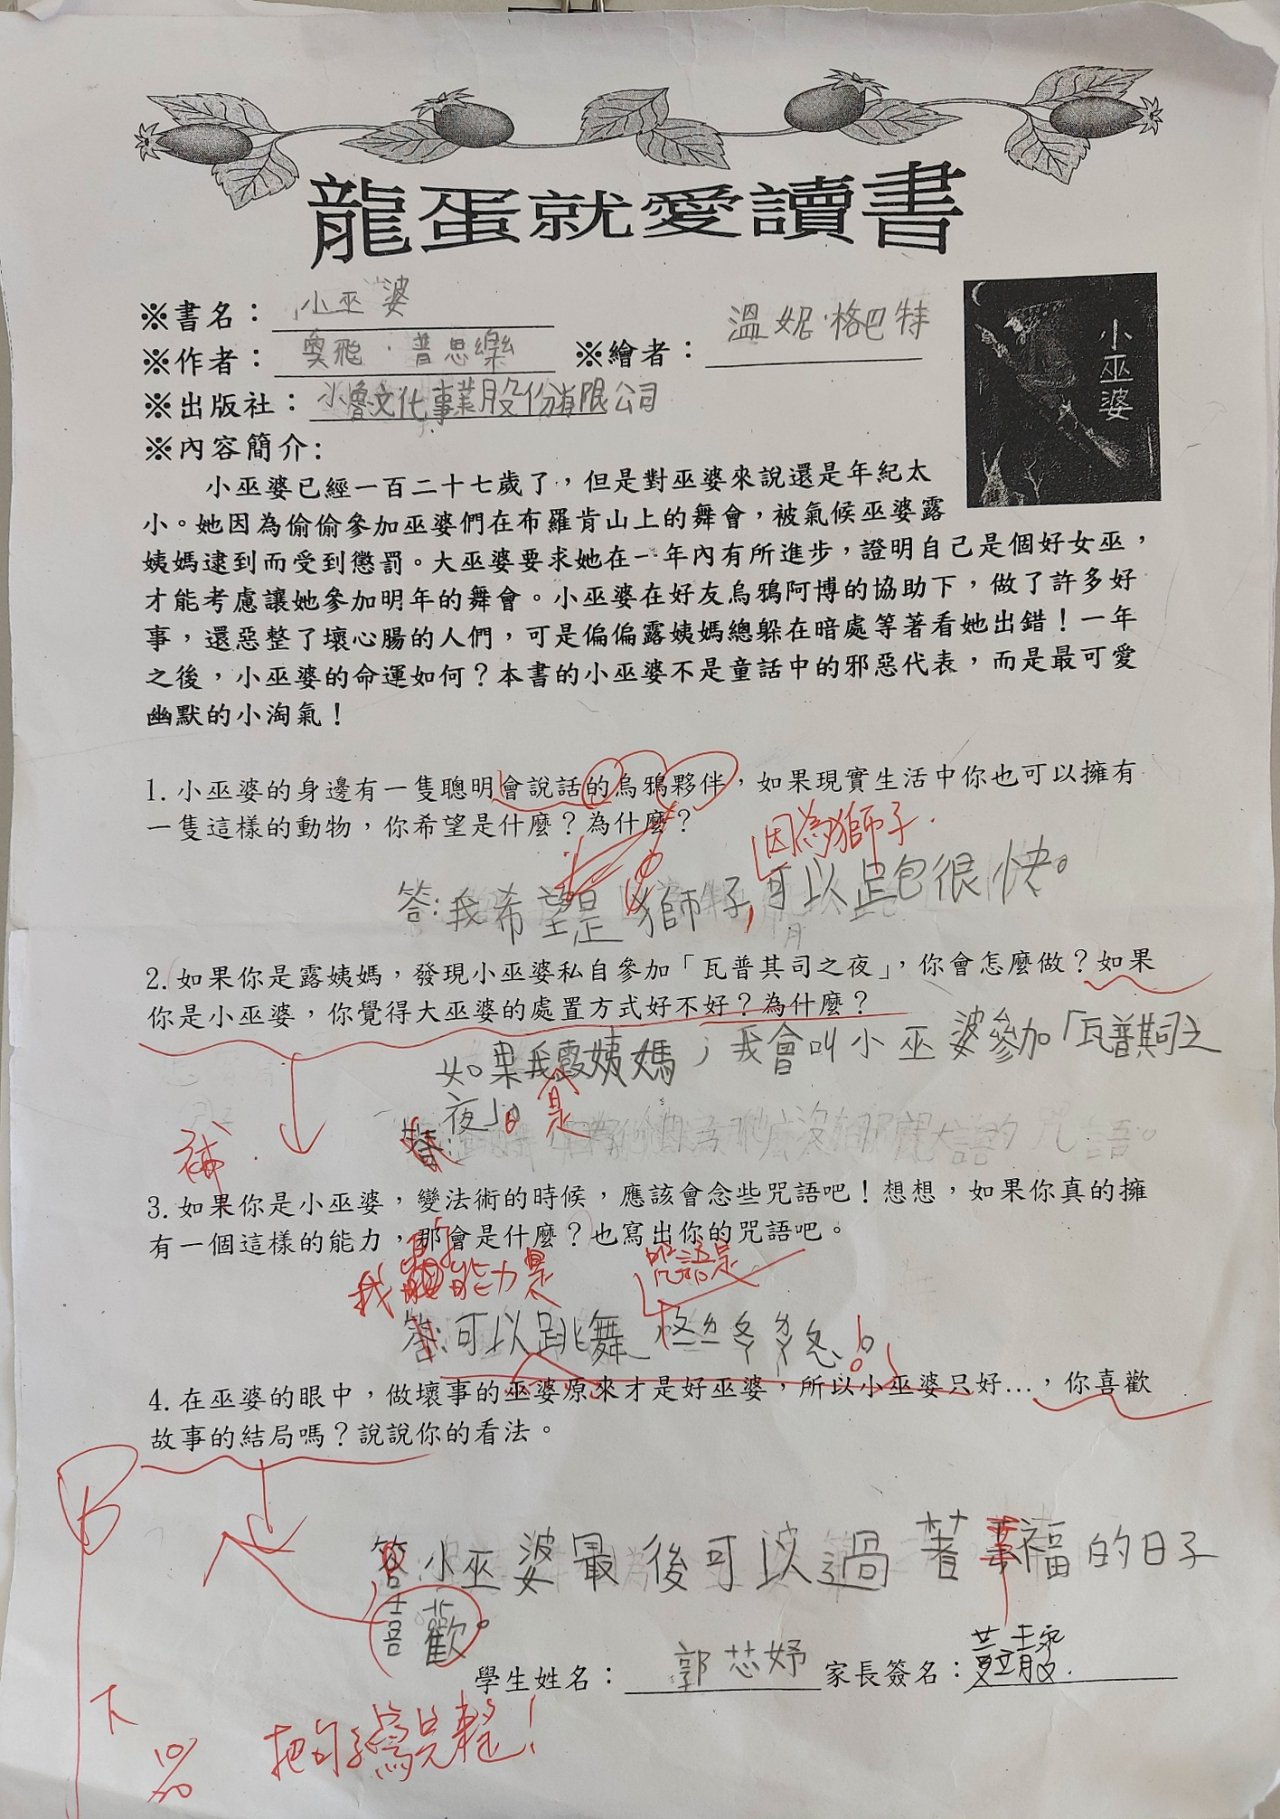 龍蛋就愛讀書
小巫婆
※書名：小巫婆
※作者：奧飛．普思樂 ※繪者：溫妮．格巴特
※出版社：小魯文化事業股份有限公司
※內容簡介：
小巫婆已經一百二十七歲了，但是對巫婆來說還是年紀太
小。她因為偷偷參加巫婆們在布羅肯山上的舞會，被氣候巫婆露
姨媽逮到而受到懲罰。大巫婆要求她在一年內有所進步，證明自己是個好女巫，
才能考慮讓她參加明年的舞會。小巫婆在好友烏鴉阿博的協助下，做了許多好
事，還惡整了壞心腸的人們，可是偏偏露姨媽總躲在暗處等著看她出錯！一年
之後，小巫婆的命運如何？本書的小巫婆不是童話中的邪惡代表，而是最可愛
幽默的小淘氣！
1.小巫婆的身邊有一隻聰明會說話的烏鴉夥伴，如果現實生活中你也可以擁有
一隻這樣的動物，你希望是什麼？為什麼？
因為獅子．
答：我希望是獅子，可以跑很快。
2.如果你是露姨媽，發現小巫婆私自參加「瓦普其司之夜」，你會怎麼做？如果
你是小巫婆，你覺得大巫婆的處置方式好不好？為什麼？
如果我露姨媽，我會叫小巫婆參加「瓦普其司之
夜」。
是
補．
3.如果你是小巫婆，變法術的時候，應該會念些咒語吧！想想，如果你真的擁
有一個這樣的能力，那會是什麼？也寫出你的咒語吧。
我 能力是 咒語是
答：可以跳舞
4.在巫婆的眼中，做壞事的巫婆原來才是好巫婆，所以小巫婆只好…，你喜歡
故事的結局嗎？說說你的看法。
答：小巫婆最後可以過著幸福的日子
喜歡。
學生姓名：郭芯妤 家長簽名：
B
下
10/20
把句子寫完整！